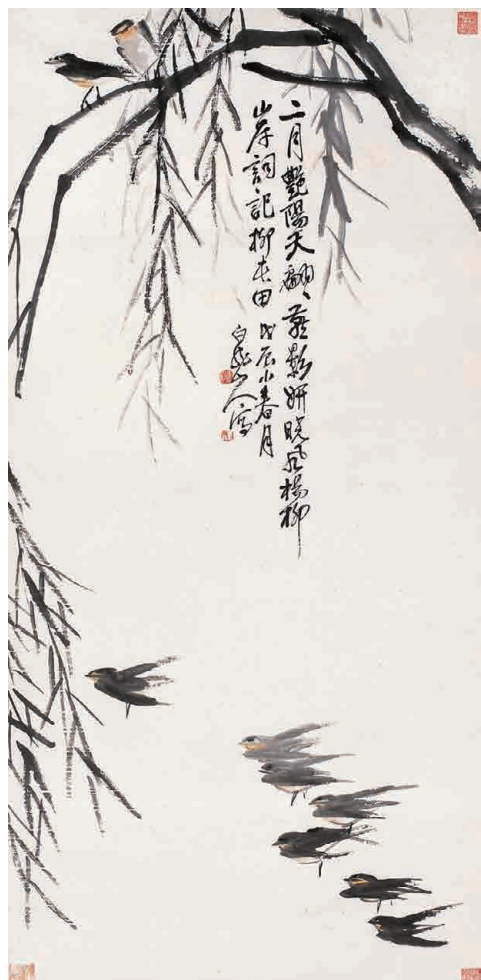 二月艷陽天翩〻燕影妍曉風楊柳
岸詞記柳屯田 戊辰小春月
白龍山人寫